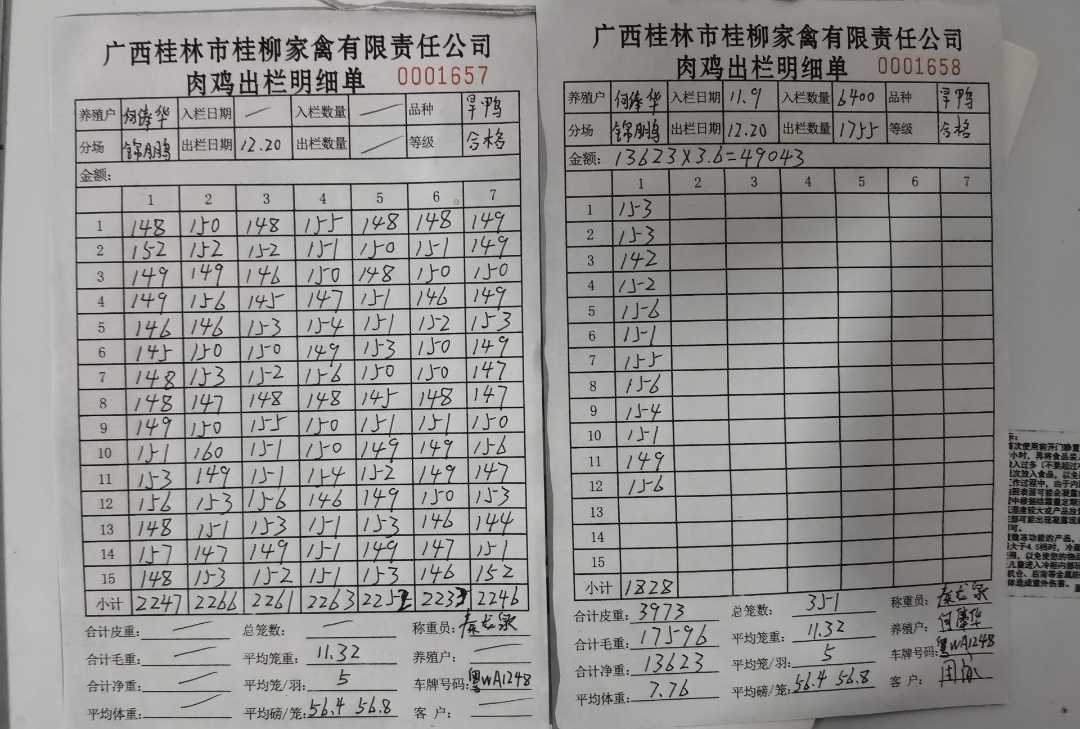 广西桂林市桂柳家禽有限责任公司
肉鸡出栏明细单 0001657
养殖户 何俸华 入栏日期 — 入栏数量 — 品种 旱鸭
分场 锦鹏 出栏日期 12.20 出栏数量 — 等级 合格
金额:
1 2 3 4 5 6 7
1 148 150 148 155 148 148 149
2 152 152 152 151 150 151 149
3 149 149 146 150 148 150 150
4 149 156 145 147 151 146 149
5 146 146 153 154 151 152 153
6 145 150 150 149 153 150 149
7 148 153 152 156 150 150 147
8 148 147 148 148 145 148 147
9 149 150 155 150 151 151 150
10 151 160 151 150 149 149 156
11 153 149 151 154 152 149 147
12 156 153 156 146 149 150 153
13 148 151 153 151 153 146 144
14 157 147 149 151 149 147 151
15 148 153 152 151 153 146 152
小计 2247 2266 2261 2263 2252 2233 2246
合计皮重: — 总笼数: — 称重员:
合计毛重: — 平均笼重: 11.32 养殖户: —
合计净重: — 平均笼/羽: 5 车牌号码: 粤WA1248
平均体重: — 平均磅/笼: 56.4 56.8 客 户: —
广西桂林市桂柳家禽有限责任公司
肉鸡出栏明细单 0001658
养殖户 何俸华 入栏日期 11.9 入栏数量 6400 品种 旱鸭
分场 锦鹏 出栏日期 12.20 出栏数量 1755 等级 合格
金额: 13623×3.6=49043
1 2 3 4 5 6 7
1 153
2 153
3 142
4 152
5 156
6 151
7 155
8 156
9 154
10 151
11 149
12 156
13
14
15
小计 1828
合计皮重: 3973 总笼数: 351 称重员:
合计毛重: 17596 平均笼重: 11.32 养殖户: 何俸华
合计净重: 13623 平均笼/羽: 5 车牌号码: 粤WA1248
平均体重: 7.76 平均磅/笼: 56.4 56.8 客 户: